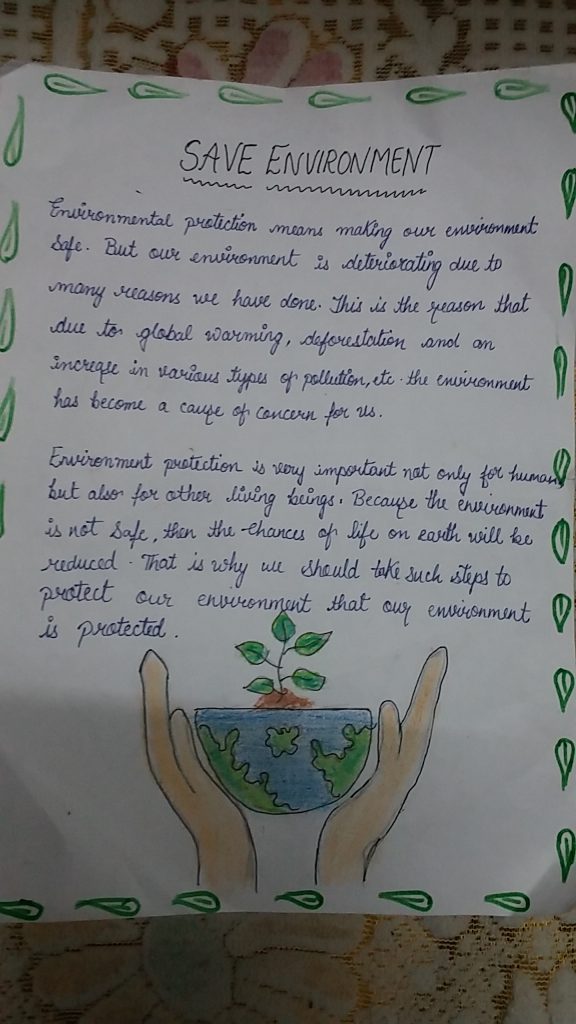 SAVE ENVIRONMENT
Environmental protection means making our environment
safe. But our environment is deteriorating due to
many reasons we have done. This is the reason that
due to global warming, deforestation and an
increase in various types of pollution, etc. the environment
has become a cause of concern for us.
Environment protection is very important not only for humans
but also for other living beings. Because the environment
is not safe, then the chances of life on earth will be
reduced. That is why we should take such steps to
protect our environment that our environment
is protected.